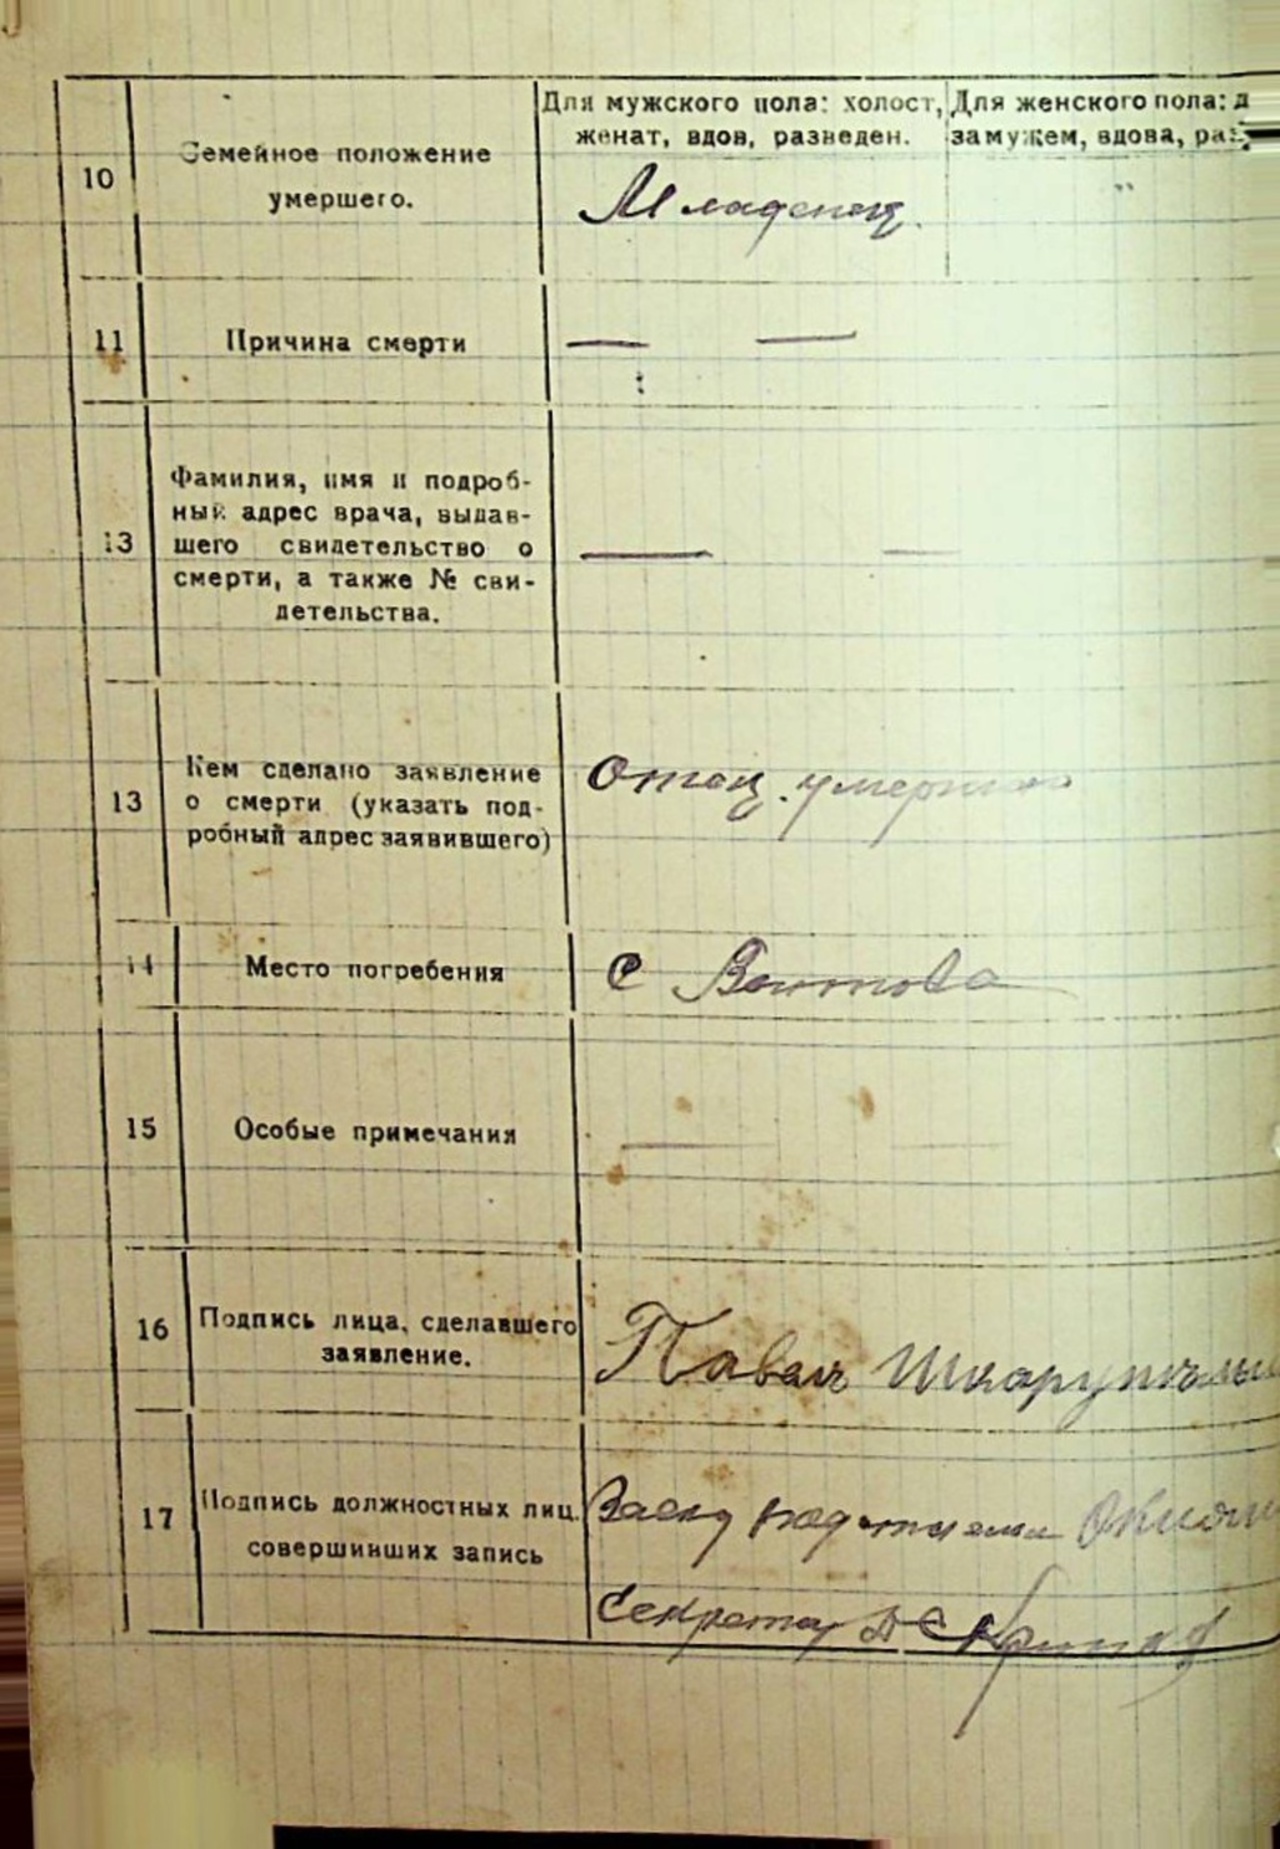 10
Семейное положение
умершего.
Для мужского пола: холост,
женат, вдов, разведен.
Для женского пола: д
замужем, вдова, раз
Младенец.
11
Причина смерти
— —
13
Фамилия, имя и подроб-
ный адрес врача, выдав-
шего свидетельство о
смерти, а также № сви-
детельства.
— —
13
Кем сделано заявление
о смерти (указать под-
робный адрес заявившего)
Отец умершего
14
Место погребения
с Воитова
15
Особые примечания
— —
16
Подпись лица, сделавшего
заявление.
Павель
17
Подпись должностных лиц.
совершивших запись
Секретар